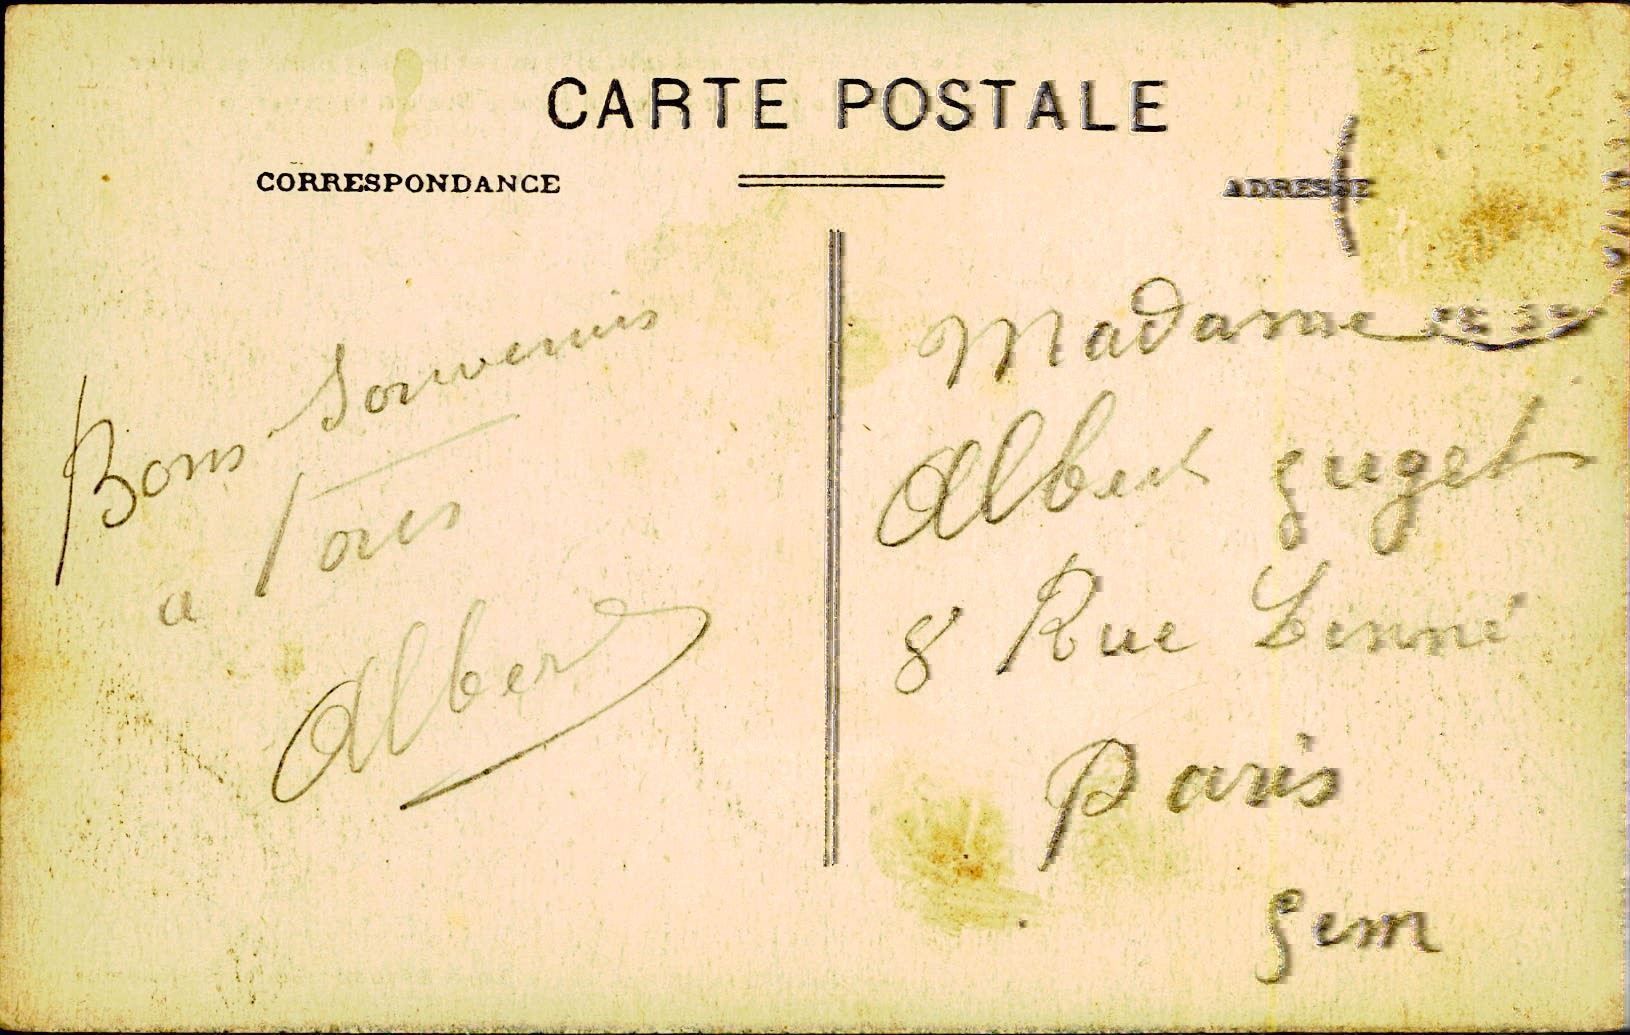 CARTE POSTALE
CORRESPONDANCE
ADRESSE
Bons Souvenirs
a Tous
Albert
Madame
Albert guget
8 Rue Linné
Paris
5em